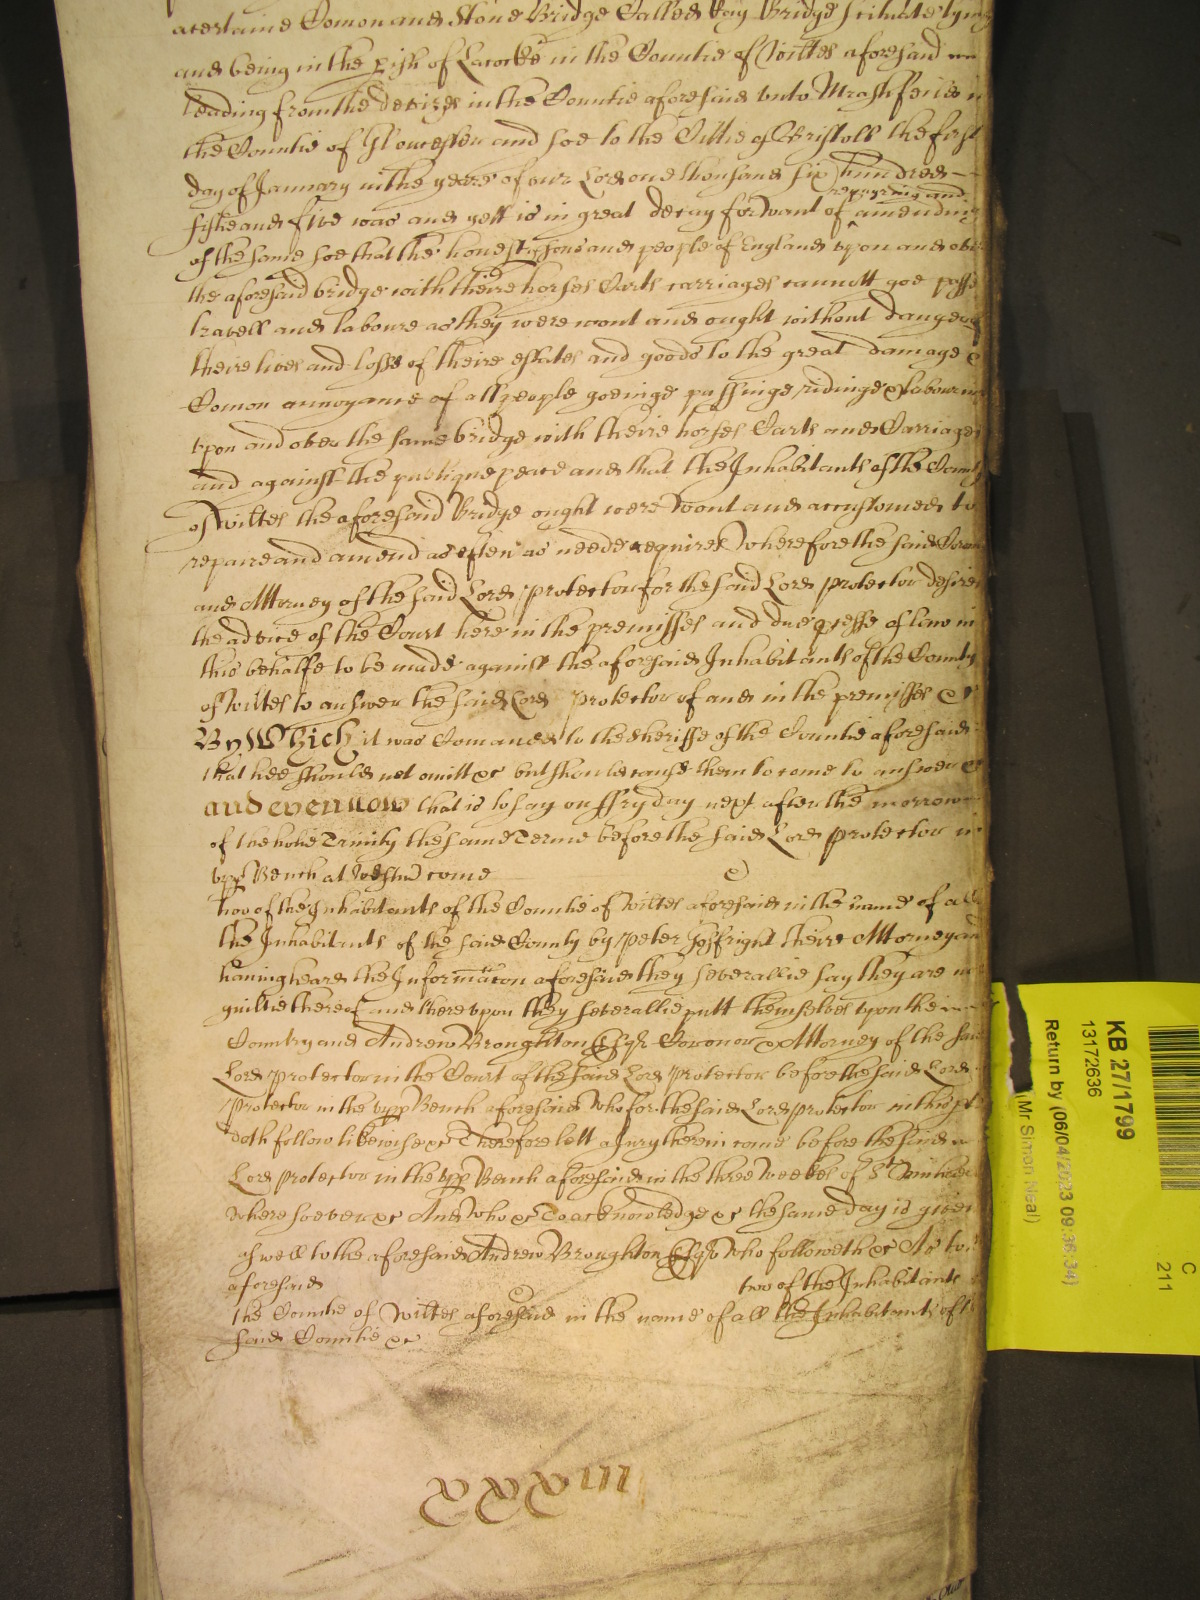 a certaine Comon and Stone Bridge Called Ray Bridge scituate lying
and being in the pish of Lacocke in the Countie of Wiltes aforesaid
leading from the devizes in the Countie aforesaid unto Mrashfeild in
the Countie of Gloucester and soe to the Cittie of Bristoll the first
day of January in the yeare of our Lord one thousand six hundred
repayring and
fiftie and five was and yett is in great decay for want of amending
of the same soe that the honest psons and people of England upon and over
the aforesaid bridge with theire horses Carts carriages cannott goe passe
travell and laboure as they were wont and ought without danger of
theire lives and losse of theire estates and goods to the great damage &
Comon annoyance of all people goeinge passinge ridinge & labouring
upon and over the same bridge with theire horses Carts and Carriages
and against the publique peace and that the Inhabitants of the County
of Wiltes the aforesaid Bridge ought were wont and accustomed to
repaire and amend as often as neede requires Wherefore the said Coron
and Attorney of the said Lord Protector for the said Lord Protector desires
the advice of the Court here in the premisses and due pcesse of law in
this behalfe to be made against the aforesaid Inhabitants of the County
of Wiltes to answer the said Lord Protector of and in the premisses &c
By Which it was Comanded to the Sheriffe of the Countie aforesaid
that hee should not omitt &c but should cause them to come to answer &c
and even now that is to say on ffryday next after the morrow
of the holie Trinity the same Terme before the said Lord Protector in
upp Bench at Westm come
two of the Inhabitants of the Countie of Wiltes aforesaid in the name of all
the Inhabitants of the said County by Peter Gosfright theire Attorney and
haveing heard the Informacon aforesaid they severallie say they are not
guiltie thereof and thereupon they severallie putt themselves upon the
Country and Andrew Broughton Esqr Coronor & Attorney of the said
Lord Protector in the Court of the said Lord Protector before the said Lord
Protector in the upp Bench aforesaid who for the said Lord protector in this pt
doth follow likewise &c Therefore lett a Jury therein come before the said
Lord Protector in the upp Bench aforesaid in the three Weekes of St
Wheresoever &c And who &c To acknowledge &c the same day is given
aswell to the aforesaid Andrew Broughton Esqr who followeth &c As to
aforesaid two of the Inhabitants
the Countie of Wiltes aforesaid in the name of all the Inhabitants of the
said Countie &c
xxxiii
KB 27/1799
13172636
Return by (06/04/2023 09:36:34)
Mr Simon Neal)
C
211